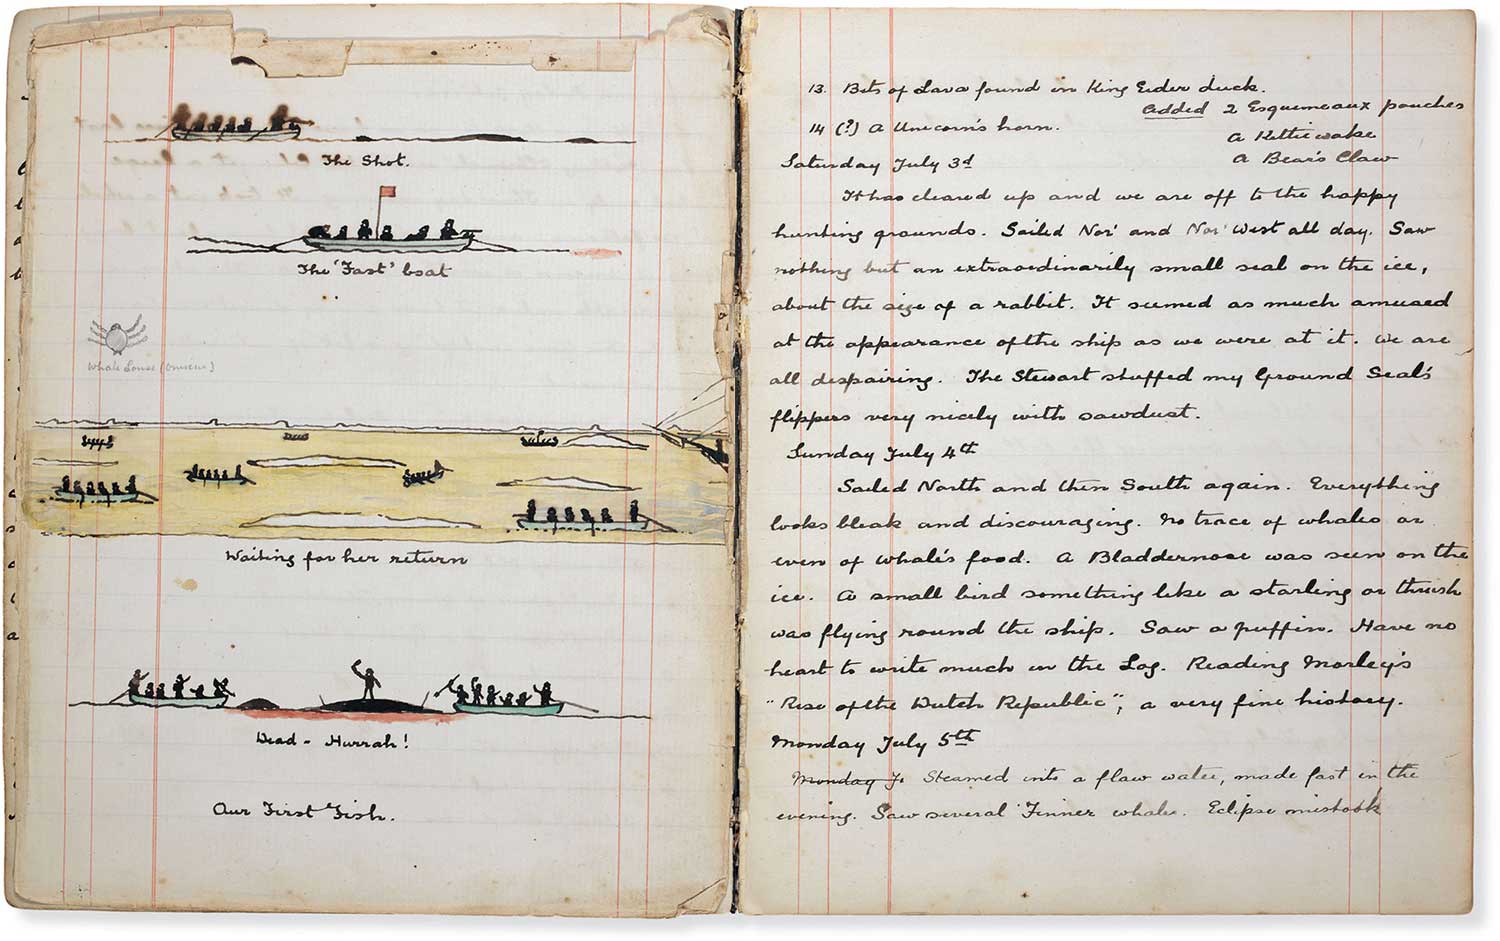 The Shot.
The 'Fast' boat
Whale Louse (Oniscus)
Waiting for her return
Dead - Hurrah!
Our First Fish.
13. Bits of Lava found in King Eider duck.
Added 2 Esquemeaux pouches
14 (?) A Unicorn's horn.
A Kittiwake
A Bear's Claw
Saturday July 3d
It has cleared up and we are off to the happy
hunting grounds. Sailed Nor' and Nor' West all day. Saw
nothing but an extraordinarily small seal on the ice,
about the size of a rabbit. It seemed as much amused
at the appearance of the ship as we were at it. We are
all despairing. The Stewart stuffed my Ground Seal's
flippers very nicely with sawdust.
Sunday July 4th
Sailed North and then South again. Everything
looks bleak and discouraging. No trace of whales or
even of whale's food. A Bladdernose was seen on the
ice. A small bird something like a starling or thrush
was flying round the ship. Saw a puffin. Have no
heart to write much in the Log. Reading Morley's
"Rise of the Dutch Republic"; a very fine history.
Monday July 5th
Monday J. Steamed into a flaw water, made fast in the
evening. Saw several Finner whales. Eclipse mistook